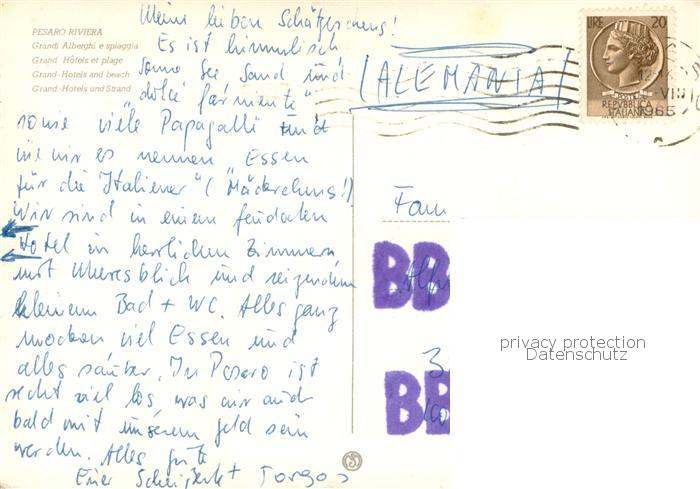 PESARO RIVIERA
Grandi Alberghi e spiaggia
Grand Hôtels et plage
Grand-Hotels and beach
Grand-Hotels und Strand
Meine lieben Schätzchens!
Es ist himmlisch
Sonne See Sand und
"dolce far niente"
sowie viele Papagalli
wie wir es nennen Essen
für die Italiener" ("Mäderchens!)
Wir sind in einem feudalen
Hotel in herrlichen Zimmern
mit Meeresblick und
kleinem Bad + WC. Alles ganz
modern viel Essen und
alles sauber. In Pesaro ist
recht viel los, was wir auch
bald mit unserem Geld sein
werden. Alles gute
Eure
(ALEMANIA)
LIRE 20
POSTE
REPVBBLICA
ITALIANA
VIII
1965
Fam
BB
BB
3
privacy protection
Datenschutz